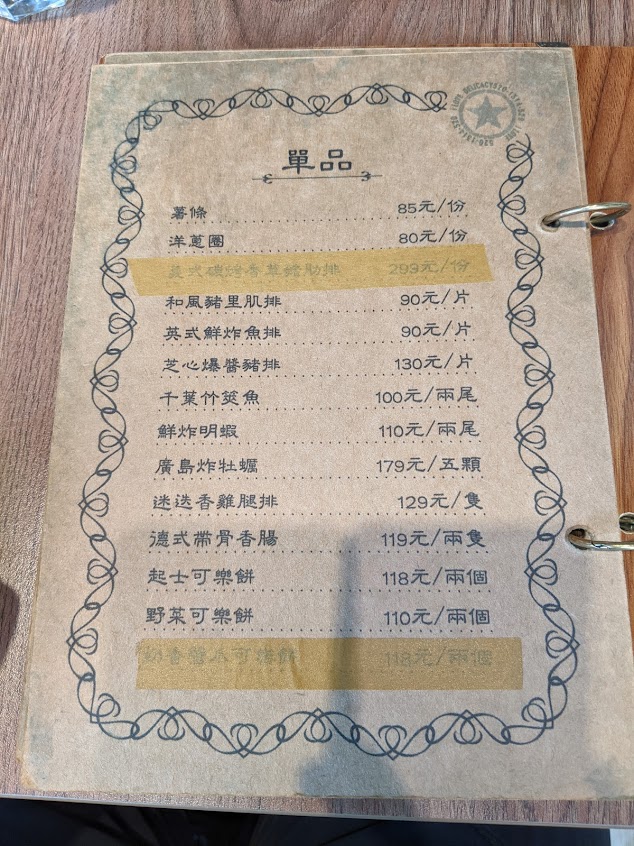 單品
薯條 85元/份
洋蔥圈 80元/份
美式碳烤香草豬肋排 299元/份
和風豬里肌排 90元/片
英式鮮炸魚排 90元/片
芝心爆醬豬排 130元/片
千葉竹筴魚 100元/兩尾
鮮炸明蝦 110元/兩尾
廣島炸牡蠣 179元/五顆
迷迭香雞腿排 129元/隻
德式帶骨香腸 119元/兩隻
起士可樂餅 118元/兩個
野菜可樂餅 110元/兩個
可樂餅 118元/兩個